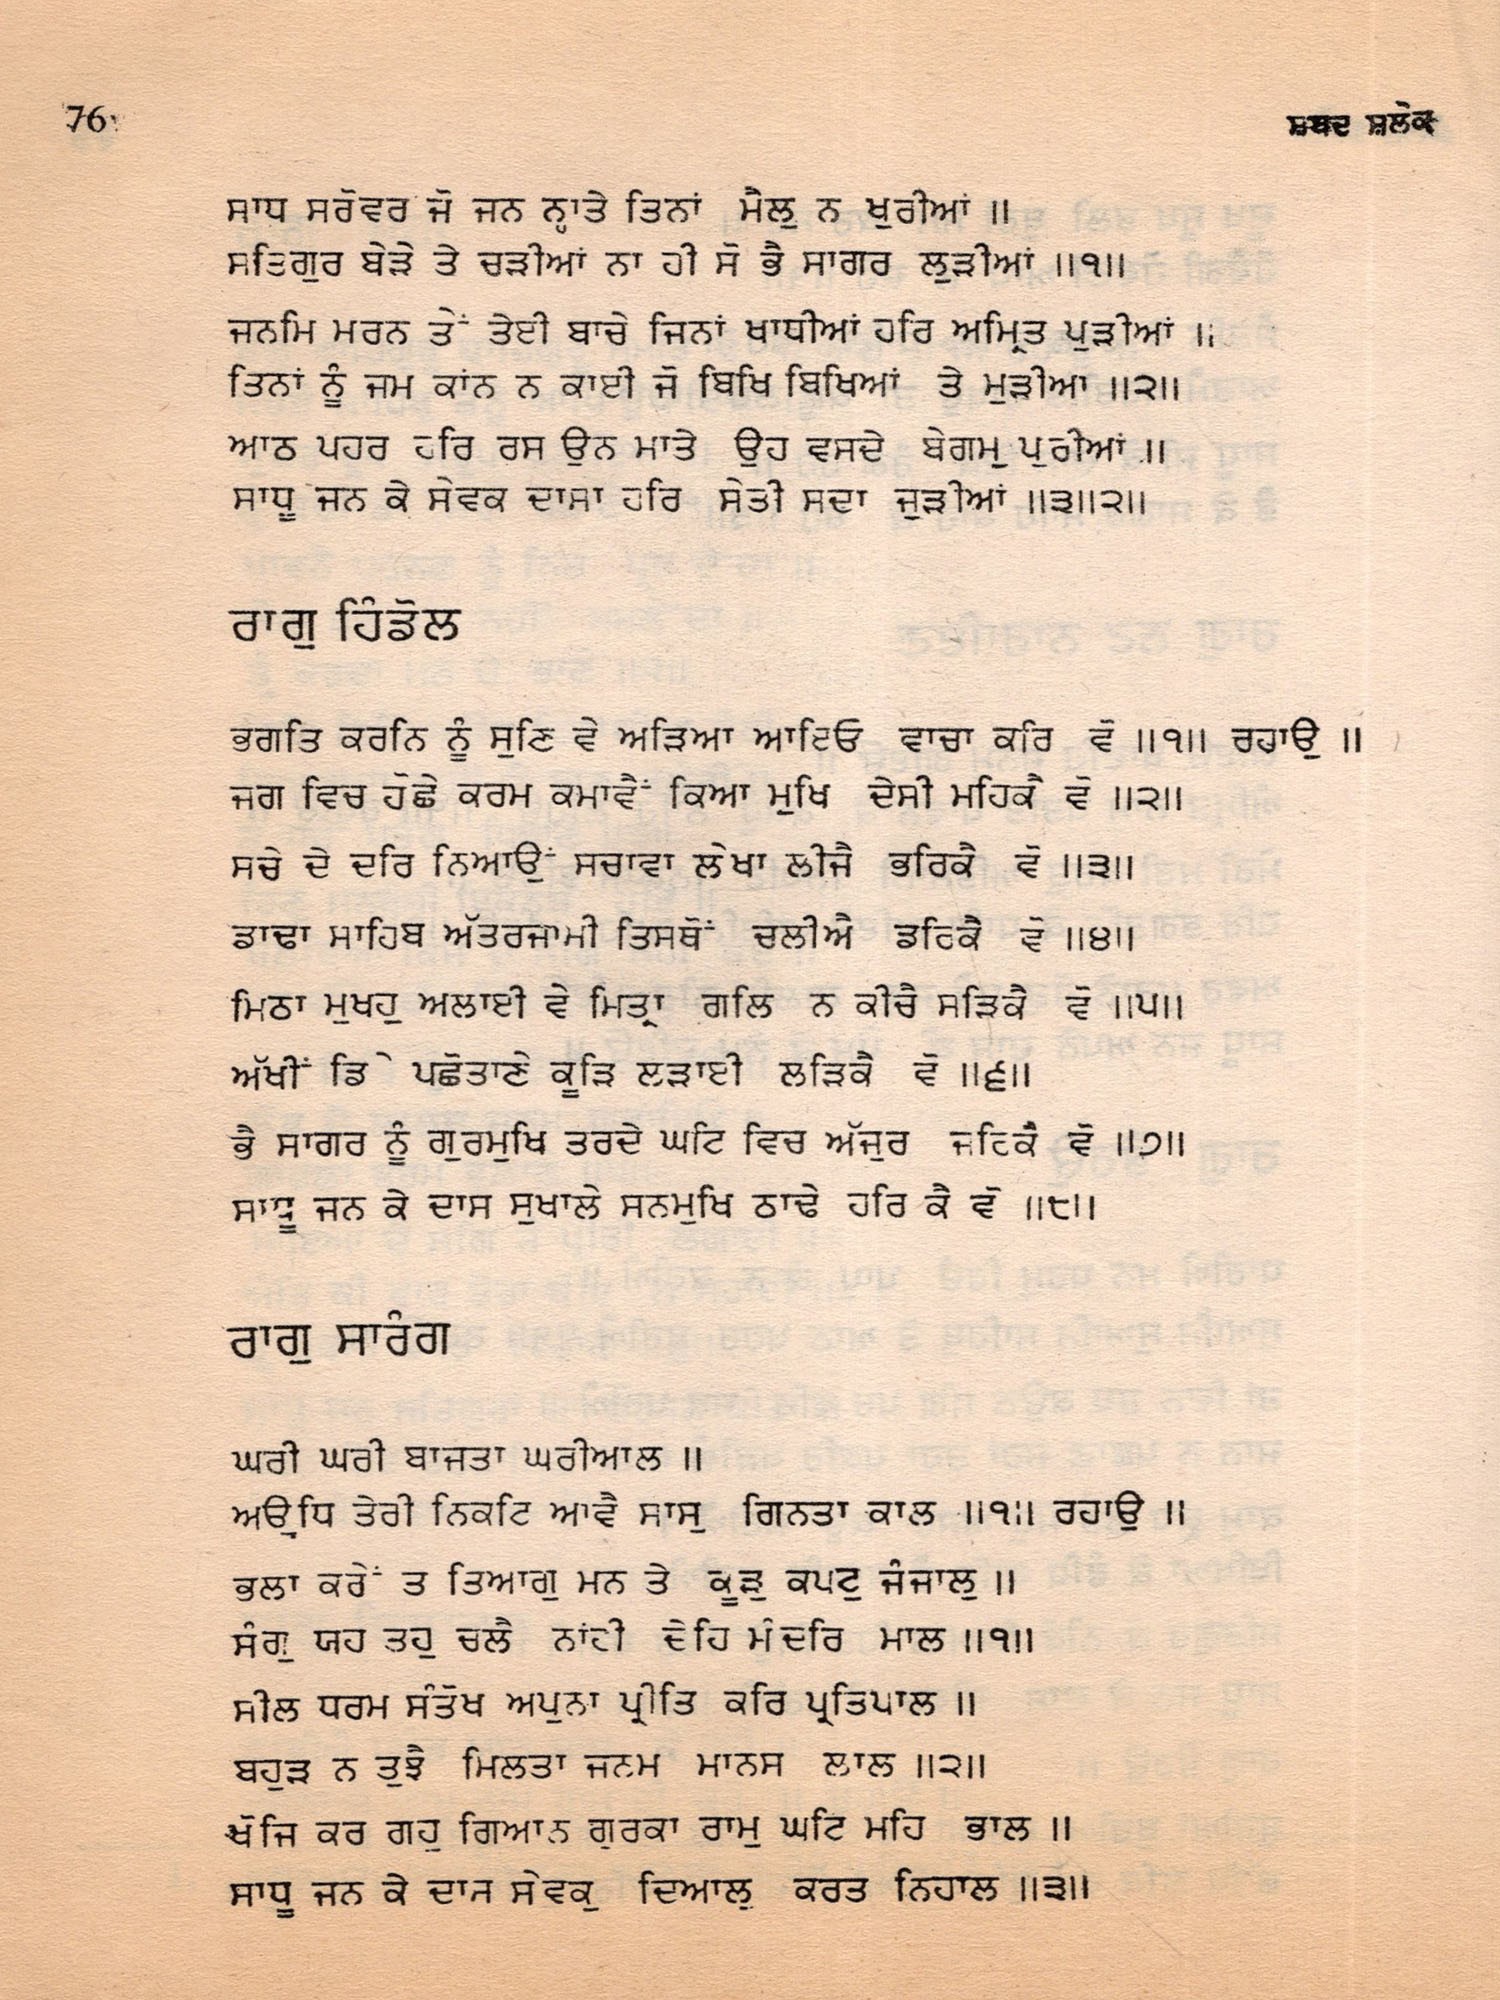 76
ਸ਼ਬਦ ਸ਼ਲੋਕ
ਸਾਧ ਸਰੋਵਰ ਜੋ ਜਨ ਨ੍ਹਾਤੇ ਤਿਨਾਂ ਮੈਲੁ ਨ ਖੁਰੀਆਂ ॥
ਸਤਿਗੁਰ ਬੇੜੇ ਤੇ ਚੜੀਆਂ ਨਾ ਹੀ ਸੋ ਭੈ ਸਾਗਰ ਲੁੜੀਆਂ ॥੧॥
ਜਨਮਿ ਮਰਨ ਤੇਂ ਤੇਈ ਬਾਚੇ ਜਿਨਾਂ ਖਾਧੀਆਂ ਹਰਿ ਅਮ੍ਰਿਤ ਪੁੜੀਆਂ ॥
ਤਿਨਾਂ ਨੂੰ ਜਮ ਕਾਂਨ ਨ ਕਾਈ ਜੋ ਬਿਖਿ ਬਿਖਿਆਂ ਤੇ ਮੁੜੀਆ ॥੨॥
ਆਠ ਪਹਰ ਹਰਿ ਰਸ ਉਨ ਮਾਤੇ ਉਹ ਵਸਦੇ ਬੇਗਮੁ ਪੁਰੀਆਂ ॥
ਸਾਧੂ ਜਨ ਕੇ ਸੇਵਕ ਦਾਸਾ ਹਰਿ ਸੇਤੀ ਸਦਾ ਜੁੜੀਆਂ ॥੩॥੨॥
ਰਾਗੁ ਹਿੰਡੋਲ
ਭਗਤਿ ਕਰਨਿ ਨੂੰ ਸੁਣਿ ਵੇ ਅੜਿਆ ਆਇਓ ਵਾਚਾ ਕਰਿ ਵੋ ॥੧॥ ਰਹਾਉ ॥
ਜਗ ਵਿਚ ਹੋਛੇ ਕਰਮ ਕਮਾਵੈਂ ਕਿਆ ਮੁਖਿ ਦੇਸੀ ਮਹਿਕੈ ਵੋ ॥੨॥
ਸਚੇ ਦੇ ਦਰਿ ਨਿਆਉਂ ਸਚਾਵਾ ਲੇਖਾ ਲੀਜੈ ਭਰਿਕੈ ਵੋ ॥੩॥
ਡਾਢਾ ਸਾਹਿਬ ਅੱਤਰਜਾਮੀ ਤਿਸਥੋਂ ਚਲੀਐ ਡਰਿਕੈ ਵੋ ॥੪॥
ਮਿਠਾ ਮੁਖਹੁ ਅਲਾਈ ਵੇ ਮਿਤ੍ਰਾ ਗਲਿ ਨ ਕੀਚੈ ਸੜਿਕੈ ਵੋ ॥੫॥
ਅੱਖੀਂ ਪਛੋਤਾਣੇ ਕੂੜਿ ਲੜਾਈ ਲੜਿਕੈ ਵੋ ॥੬॥
ਭੈ ਸਾਗਰ ਨੂੰ ਗੁਰਮੁਖਿ ਤਰਦੇ ਘਟਿ ਵਿਚ ਅੱਜੁਰ ਜਰਿਕੈ ਵੋ ॥੭॥
ਸਾਧੂ ਜਨ ਕੇ ਦਾਸ ਸੁਖਾਲੇ ਸਨਮੁਖਿ ਠਾਢੇ ਹਰਿ ਕੈ ਵੋ ॥੮॥
ਰਾਗੁ ਸਾਰੰਗ
ਘਰੀ ਘਰੀ ਬਾਜਤਾ ਘਰੀਆਲ ॥
ਅਉਧਿ ਤੇਰੀ ਨਿਕਟਿ ਆਵੈ ਸਾਸੁ ਗਿਨਤਾ ਕਾਲ ॥੧॥ ਰਹਾਉ ॥
ਭਲਾ ਕਰੇਂ ਤ ਤਿਆਗੁ ਮਨ ਤੇ ਕੂੜੁ ਕਪਟੁ ਜੰਜਾਲੁ ॥
ਸੰਗੁ ਯਹ ਤਹੁ ਚਲੈ ਨਾਂਹੀ ਦੇਹਿ ਮੰਦਰਿ ਮਾਲ ॥੧॥
ਸੀਲ ਧਰਮ ਸੰਤੋਖ ਅਪੁਨਾ ਪ੍ਰੀਤਿ ਕਰਿ ਪ੍ਰਤਿਪਾਲ ॥
ਬਹੁੜ ਨ ਤੁਝੈ ਮਿਲਤਾ ਜਨਮ ਮਾਨਸ ਲਾਲ ॥੨॥
ਖੋਜਿ ਕਰ ਗਹੁ ਗਿਆਨ ਗੁਰਕਾ ਰਾਮੁ ਘਟਿ ਮਹਿ ਭਾਲ ॥
ਸਾਧੂ ਜਨ ਕੇ ਦਾਸ ਸੇਵਕੁ ਦਿਆਲੁ ਕਰਤ ਨਿਹਾਲ ॥੩॥